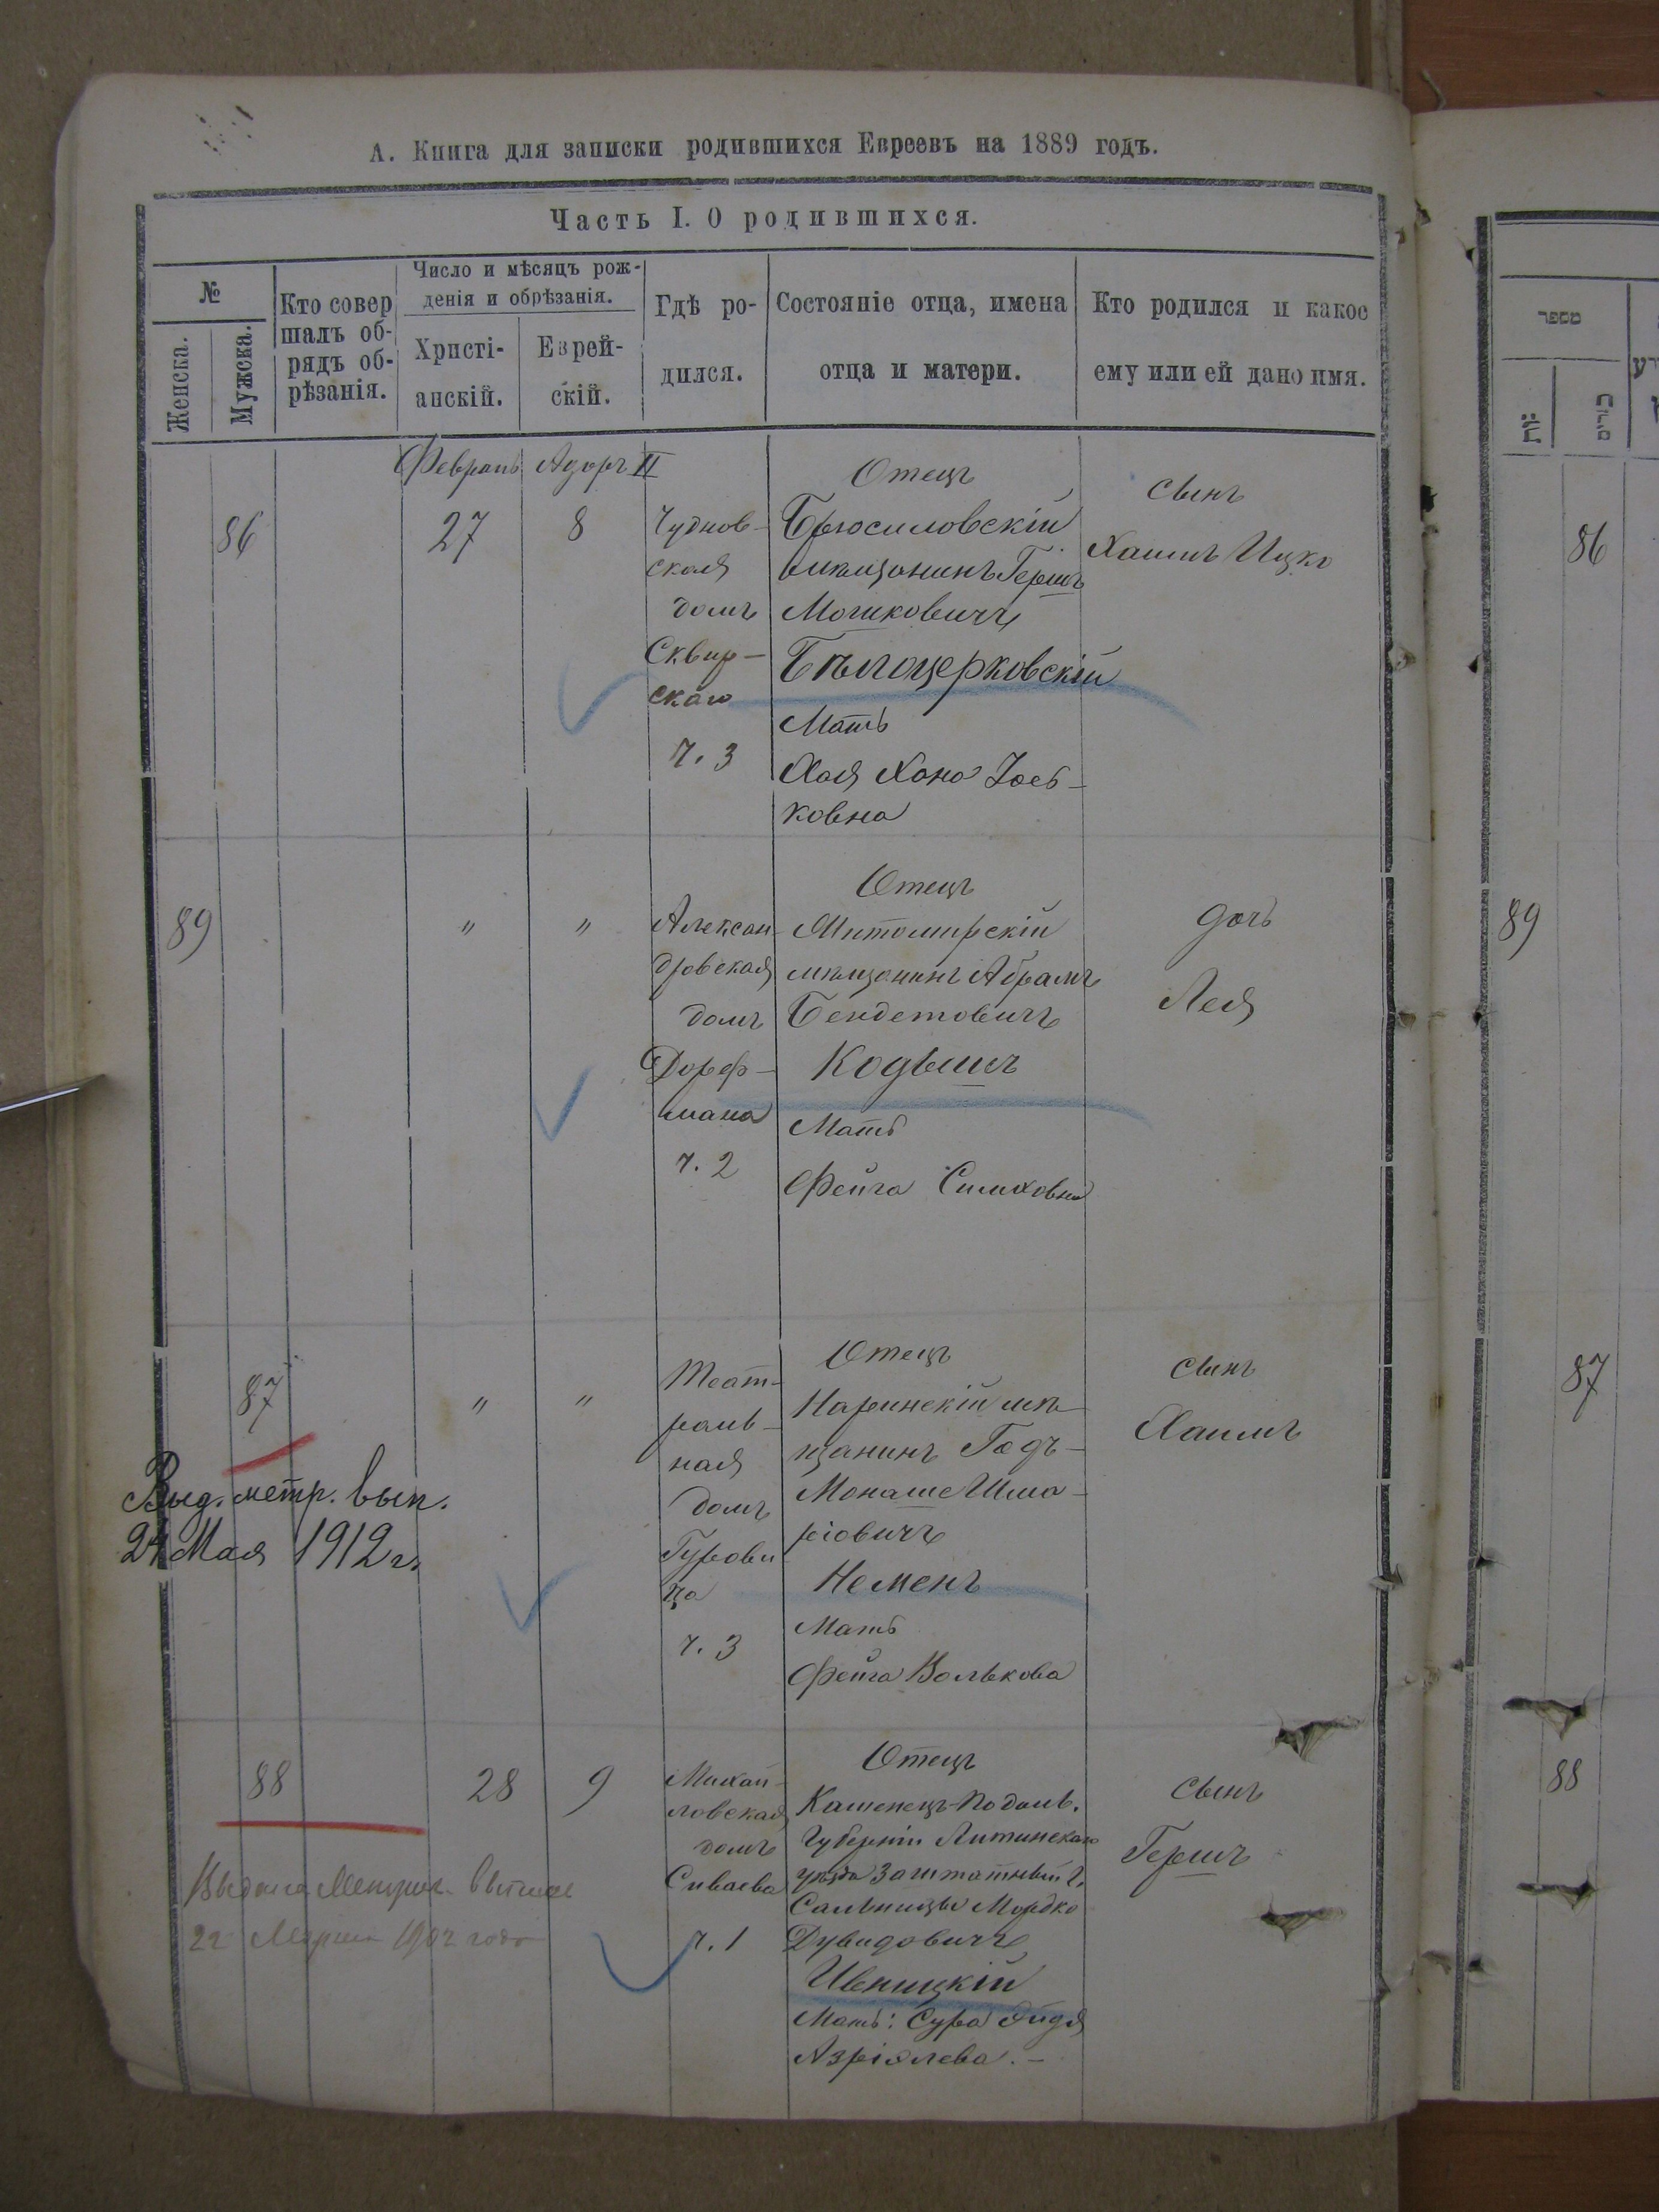 А. Книга для записки родившихся Евреевъ на 1889 годъ.
Часть I. О родившихся.
№
Женска.
Мужска.
Кто совер
шалъ об-
рядъ об-
рѣзанія.
Число и мѣсяцъ рож-
денія и обрѣзанія.
Христі-
анскій.
Еврей-
скій.
Гдѣ ро-
дился.
Состояніе отца, имена
отца и матери.
Кто родился и какое
ему или ей дано имя.
Февраль
Адаръ II
86
27
8
Чуднов-
ская
домъ
Сквир-
скаго
ч. 3
Отецъ
Брусиловскій
мѣщанинъ Гершъ
Мошковичъ
Бѣлоцерковскій
Мать
Хая Хана Іось-
ковна
сынъ
Хаимъ Ицко
89
"
"
Алексан
дровская
домъ
Дорф-
мана
ч. 2
Отецъ
Житомирскій
мѣщанинъ Абрамъ
Бендетовичъ
Кодышъ
Мать
Фейга Симховна
дочь
Лея
87
"
"
Театр-
раль-
ная
домъ
Гурови
ча
ч. 3
Отецъ
Наринскій мѣ-
щанинъ Годъ-
Монаше Шма-
ріовичъ
Неменъ
Мать
Фейга Волькова
сынъ
Хаимъ
Выд. метр. вып.
24 Мая 1912 г.
88
28
9
Михай-
ловская
домъ
Сиваева
ч. 1
Отецъ
Каменецъ-Подоль.
Губерніи Литинскаго
уѣзда Заштатный г.
Сальницы Мордко
Дувидовичъ
Ивницкій
Мать: Сура Эйдя
Азріолева. —
сынъ
Гершъ
Выдана Метрич. выпись
22 Марта 1902 года
מספר
זכרים
86
89
87
88